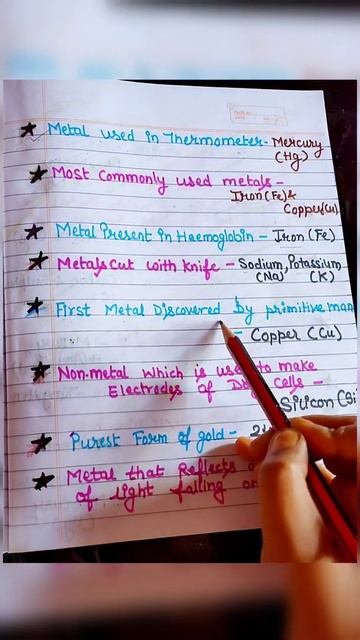 ★ Metal used in Thermometer - Mercury
(Hg)
★ Most Commonly used metals -
Iron (Fe) &
Copper (Cu)
★ Metal Present in Haemoglobin - Iron (Fe)
★ Metals Cut with Knife - Sodium, Potassium
(Na) (K)
★ First Metal Discovered by primitive man
- Copper (Cu)
★ Non-metal Which is used to make
Electrodes of Dry Cells -
Silicon (Si
★ Purest Form of gold -
★ Metal that Reflects
of light falling